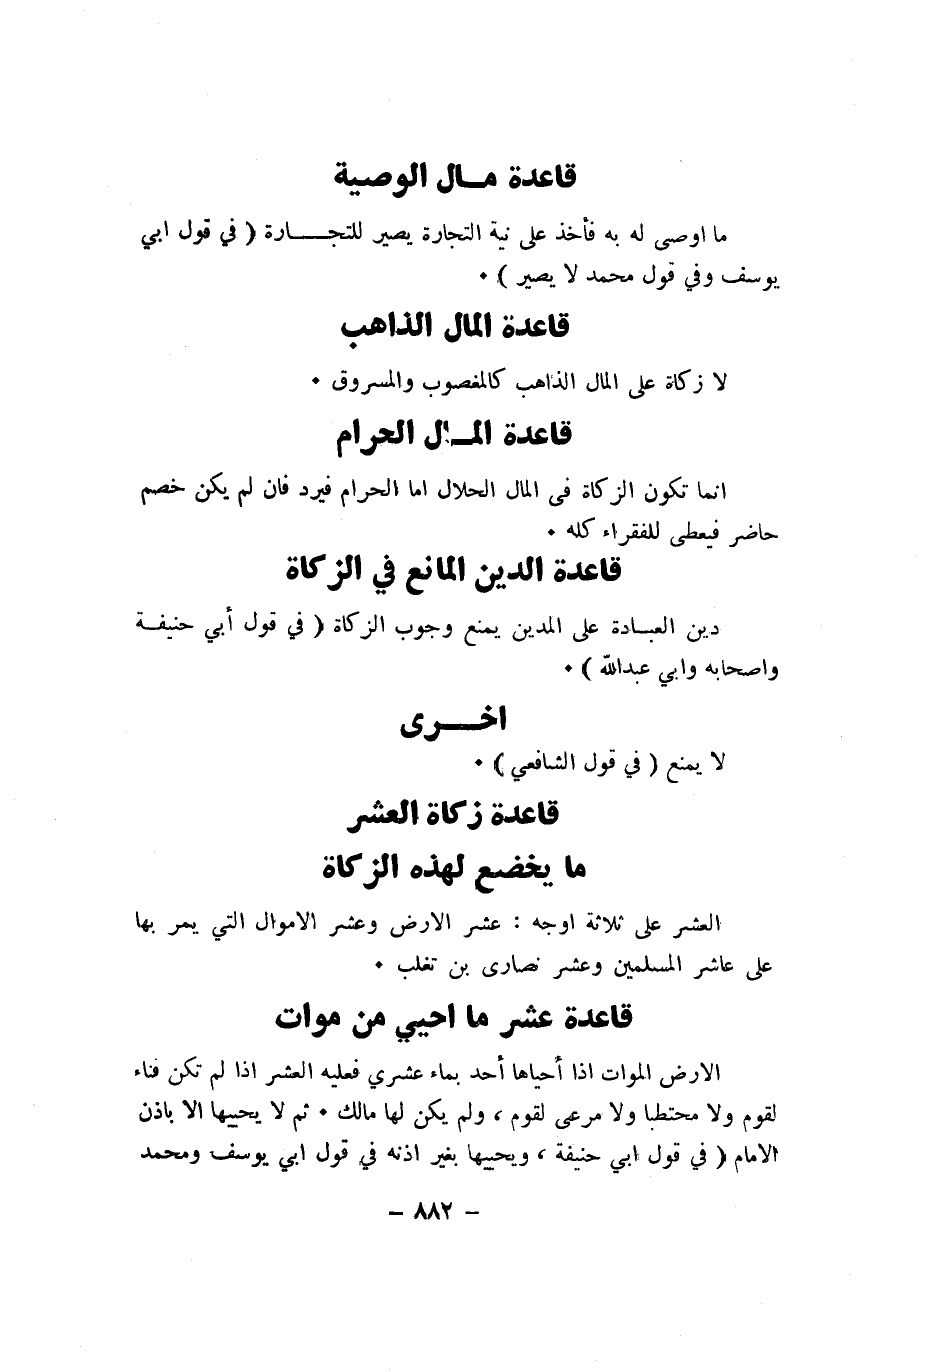 قاعدة مال الوصية
ما اوصى له به فأخذ على نية التجارة يصير للتجارة ( في قول ابي
يوسف وفي قول محمد لا يصير ) ٠
قاعدة المال الذاهب
لا زكاة على المال الذاهب كالمغصوب والمسروق ٠
قاعدة المال الحرام
انما تكون الزكاة فى المال الحلال اما الحرام فيرد فان لم يكن خصم
حاضر فيعطى للفقراء كله ٠
قاعدة الدين المانع في الزكاة
دين العبادة على المدين يمنع وجوب الزكاة ( في قول أبي حنيفة
واصحابه وابي عبدالله ) ٠
اخرى
لا يمنع ( في قول الشافعي ) ٠
قاعدة زكاة العشر
ما يخضع لهذه الزكاة
العشر على ثلاثة اوجه : عشر الارض وعشر الاموال التي يمر بها
على عاشر المسلمين وعشر نصارى بن تغلب ٠
قاعدة عشر ما احيي من موات
الارض الموات اذا أحياها أحد بماء عشري فعليه العشر اذا لم تكن فناء
لقوم ولا محتطبا ولا مرعى لقوم ، ولم يكن لها مالك ٠ ثم لا يحييها الا باذن
الامام ( في قول ابي حنيفة ، ويحييها بغير اذنه في قول ابي يوسف ومحمد
– ٨٨٢ –